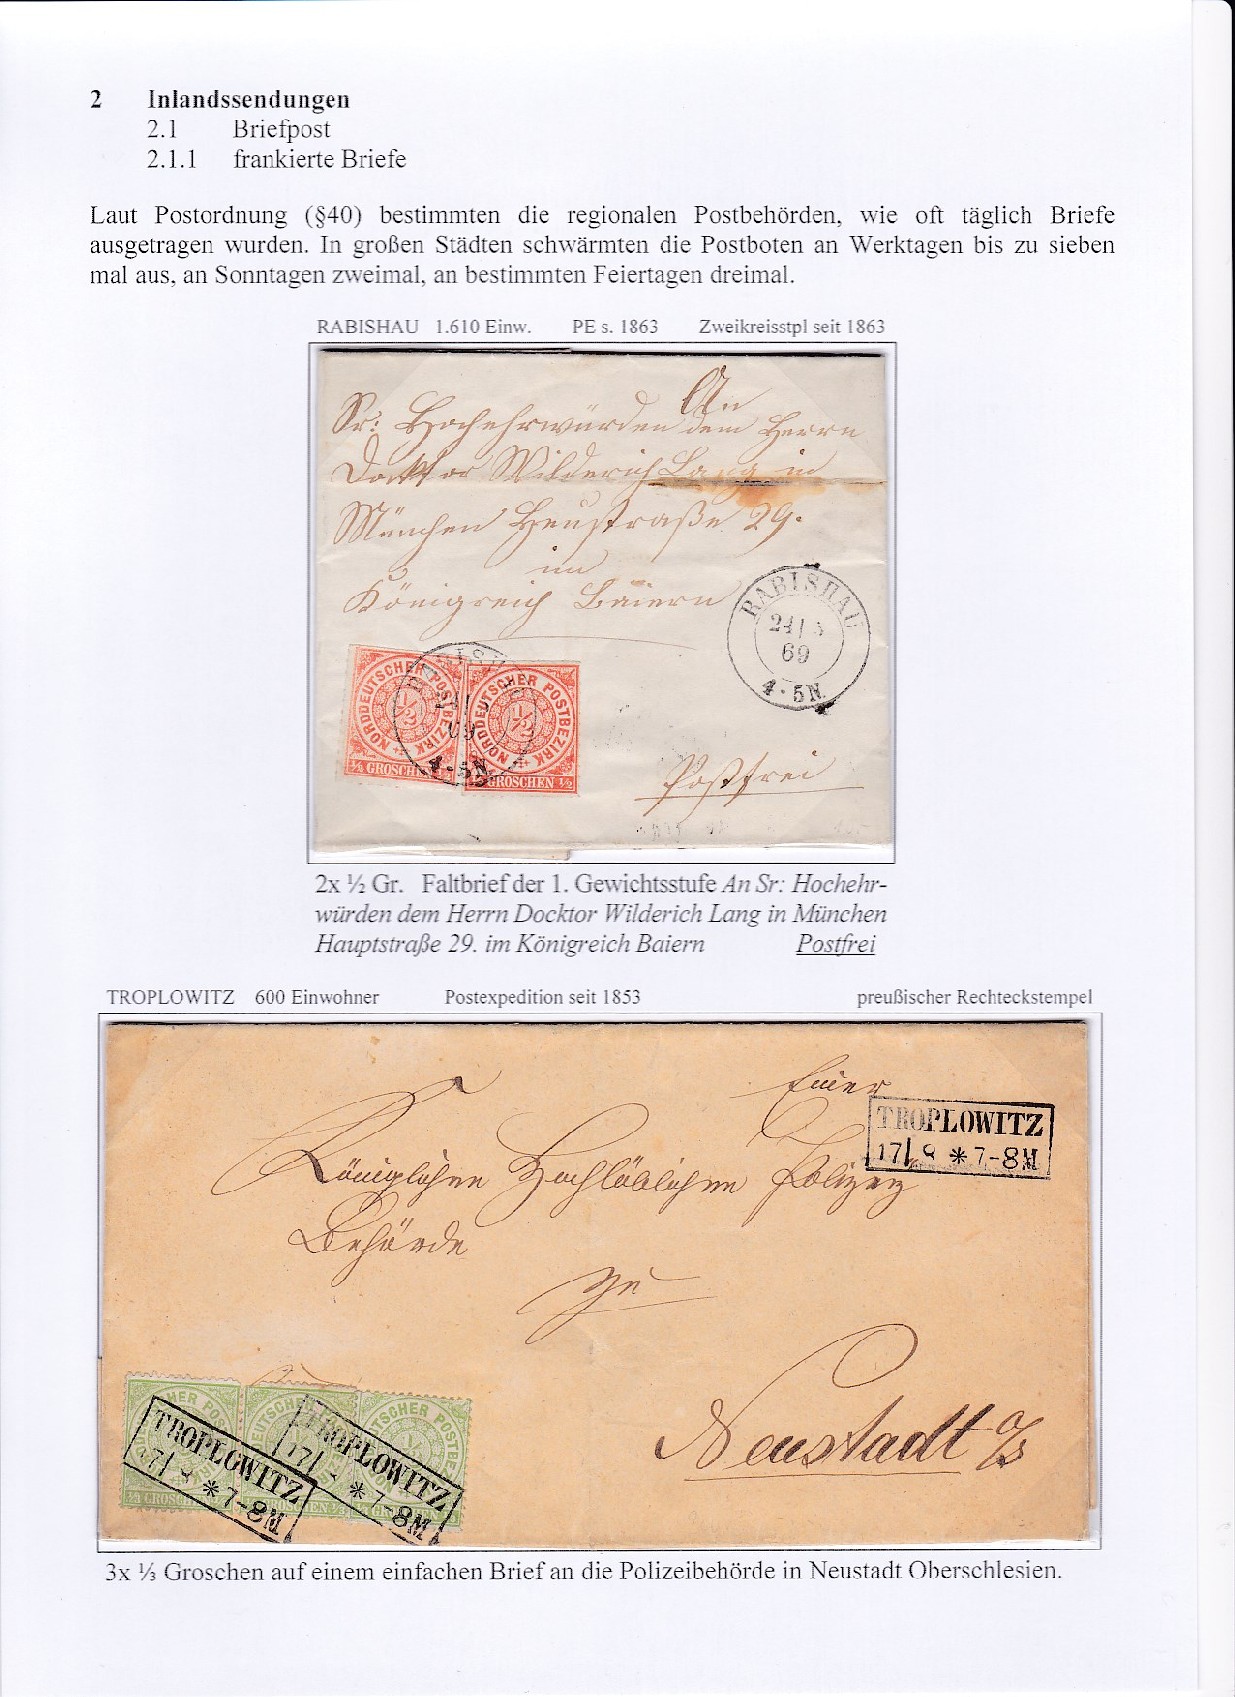 2 Inlandssendungen
2.1 Briefpost
2.1.1 frankierte Briefe
Laut Postordnung (§40) bestimmten die regionalen Postbehörden, wie oft täglich Briefe
ausgetragen wurden. In großen Städten schwärmten die Postboten an Werktagen bis zu sieben
mal aus, an Sonntagen zweimal, an bestimmten Feiertagen dreimal.
RABISHAU 1.610 Einw. PE s. 1863 Zweikreisstpl seit 1863
An
Sr: Hochehrwürden dem Herrn
Docktor Wilderich Lang in
München Heustraße 29.
im
Königreich Baiern
RABISHAU
24/5
69
4-5N
NORDDEUTSCHER POSTBEZIRK
1/2
GROSCHEN
69
4-5N
NORDDEUTSCHER POSTBEZIRK
1/2
GROSCHEN 1/2
Postfrei
2x ½ Gr. Faltbrief der 1. Gewichtsstufe An Sr: Hochehr-
würden dem Herrn Docktor Wilderich Lang in München
Hauptstraße 29. im Königreich Baiern Postfrei
TROPLOWITZ 600 Einwohner Postexpedition seit 1853 preußischer Rechteckstempel
Einer
TROPLOWITZ
17/8 *7-8M
Königlichen Hochlöblichen Polizey
Behörde
zu
Neustadt O/S
TROPLOWITZ
17/8 *7-8M
TROPLOWITZ
17/8 *7-8M
3x ⅓ Groschen auf einem einfachen Brief an die Polizeibehörde in Neustadt Oberschlesien.